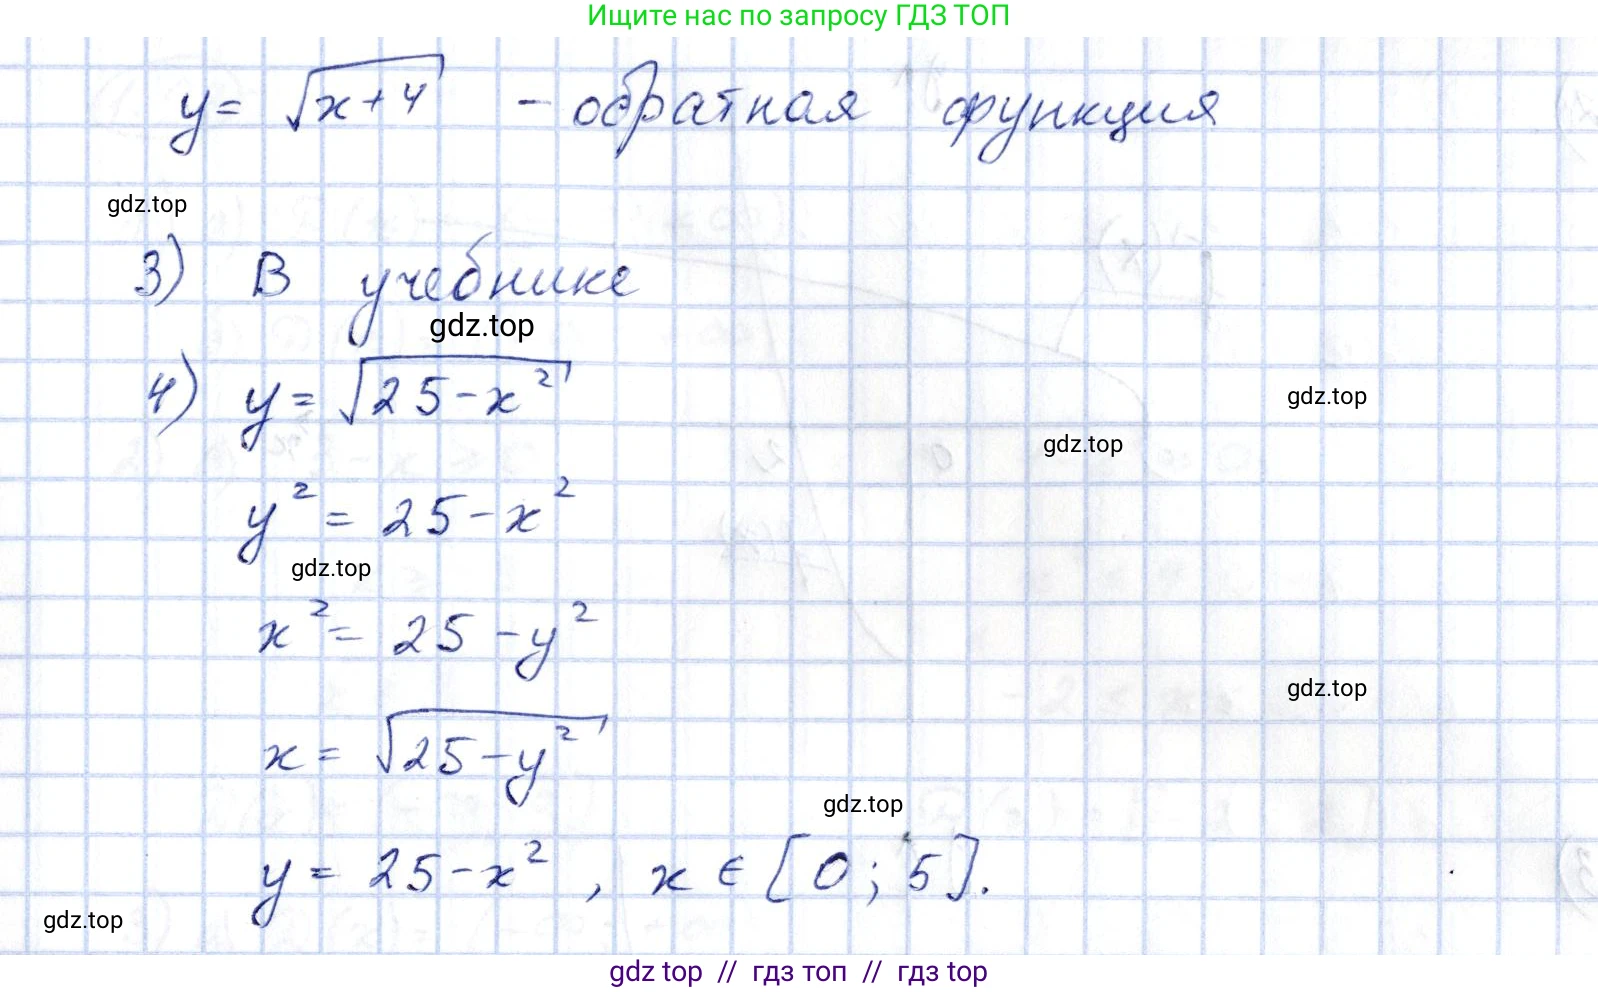 Ищите нас по запросу ГДЗ ТОП
y = √(x+4) - обратная функция
gdz.top
3) В учебнике
gdz.top
4) y = √(25-x²)
gdz.top
gdz.top
y² = 25-x²
gdz.top
x² = 25-y²
gdz.top
x = √(25-y²)
gdz.top
y = 25-x², x ∈ [0; 5].
gdz.top
gdz top // гдз топ // гдз top